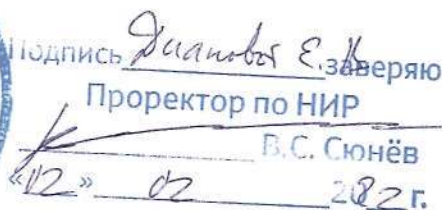 Подпись Диановой Е. В. заверяю
Проректор по НИР
В.С. Сюнёв
«02» 02 2022 г.